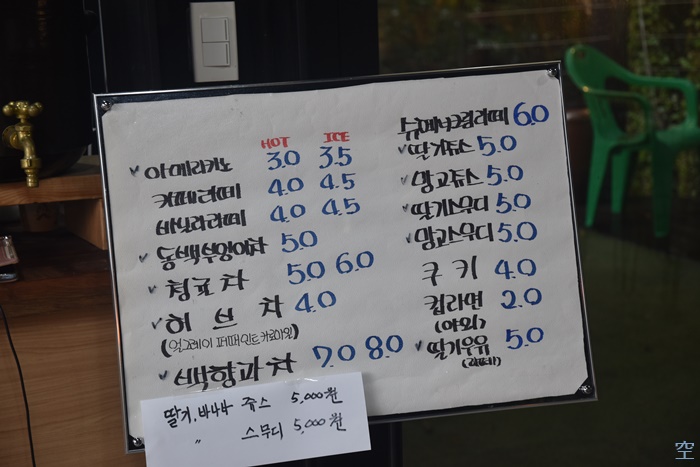 HOT ICE
아메리카노 3.0 3.5
카페라떼 4.0 4.5
바닐라라떼 4.0 4.5
동백부엉이차 5.0
청귤차 5.0 6.0
허브차 4.0
(얼그레이 페퍼민트 카모마일)
백향과차 7.0 8.0
6.0
딸기쥬스 5.0
망고쥬스 5.0
딸기스무디 5.0
망고스무디 5.0
쿠키 4.0
컵라면 2.0
(야외)
딸기우유 5.0
(라떼)
딸기, 바나나 쥬스 5,000원
〃 스무디 5,000원
空